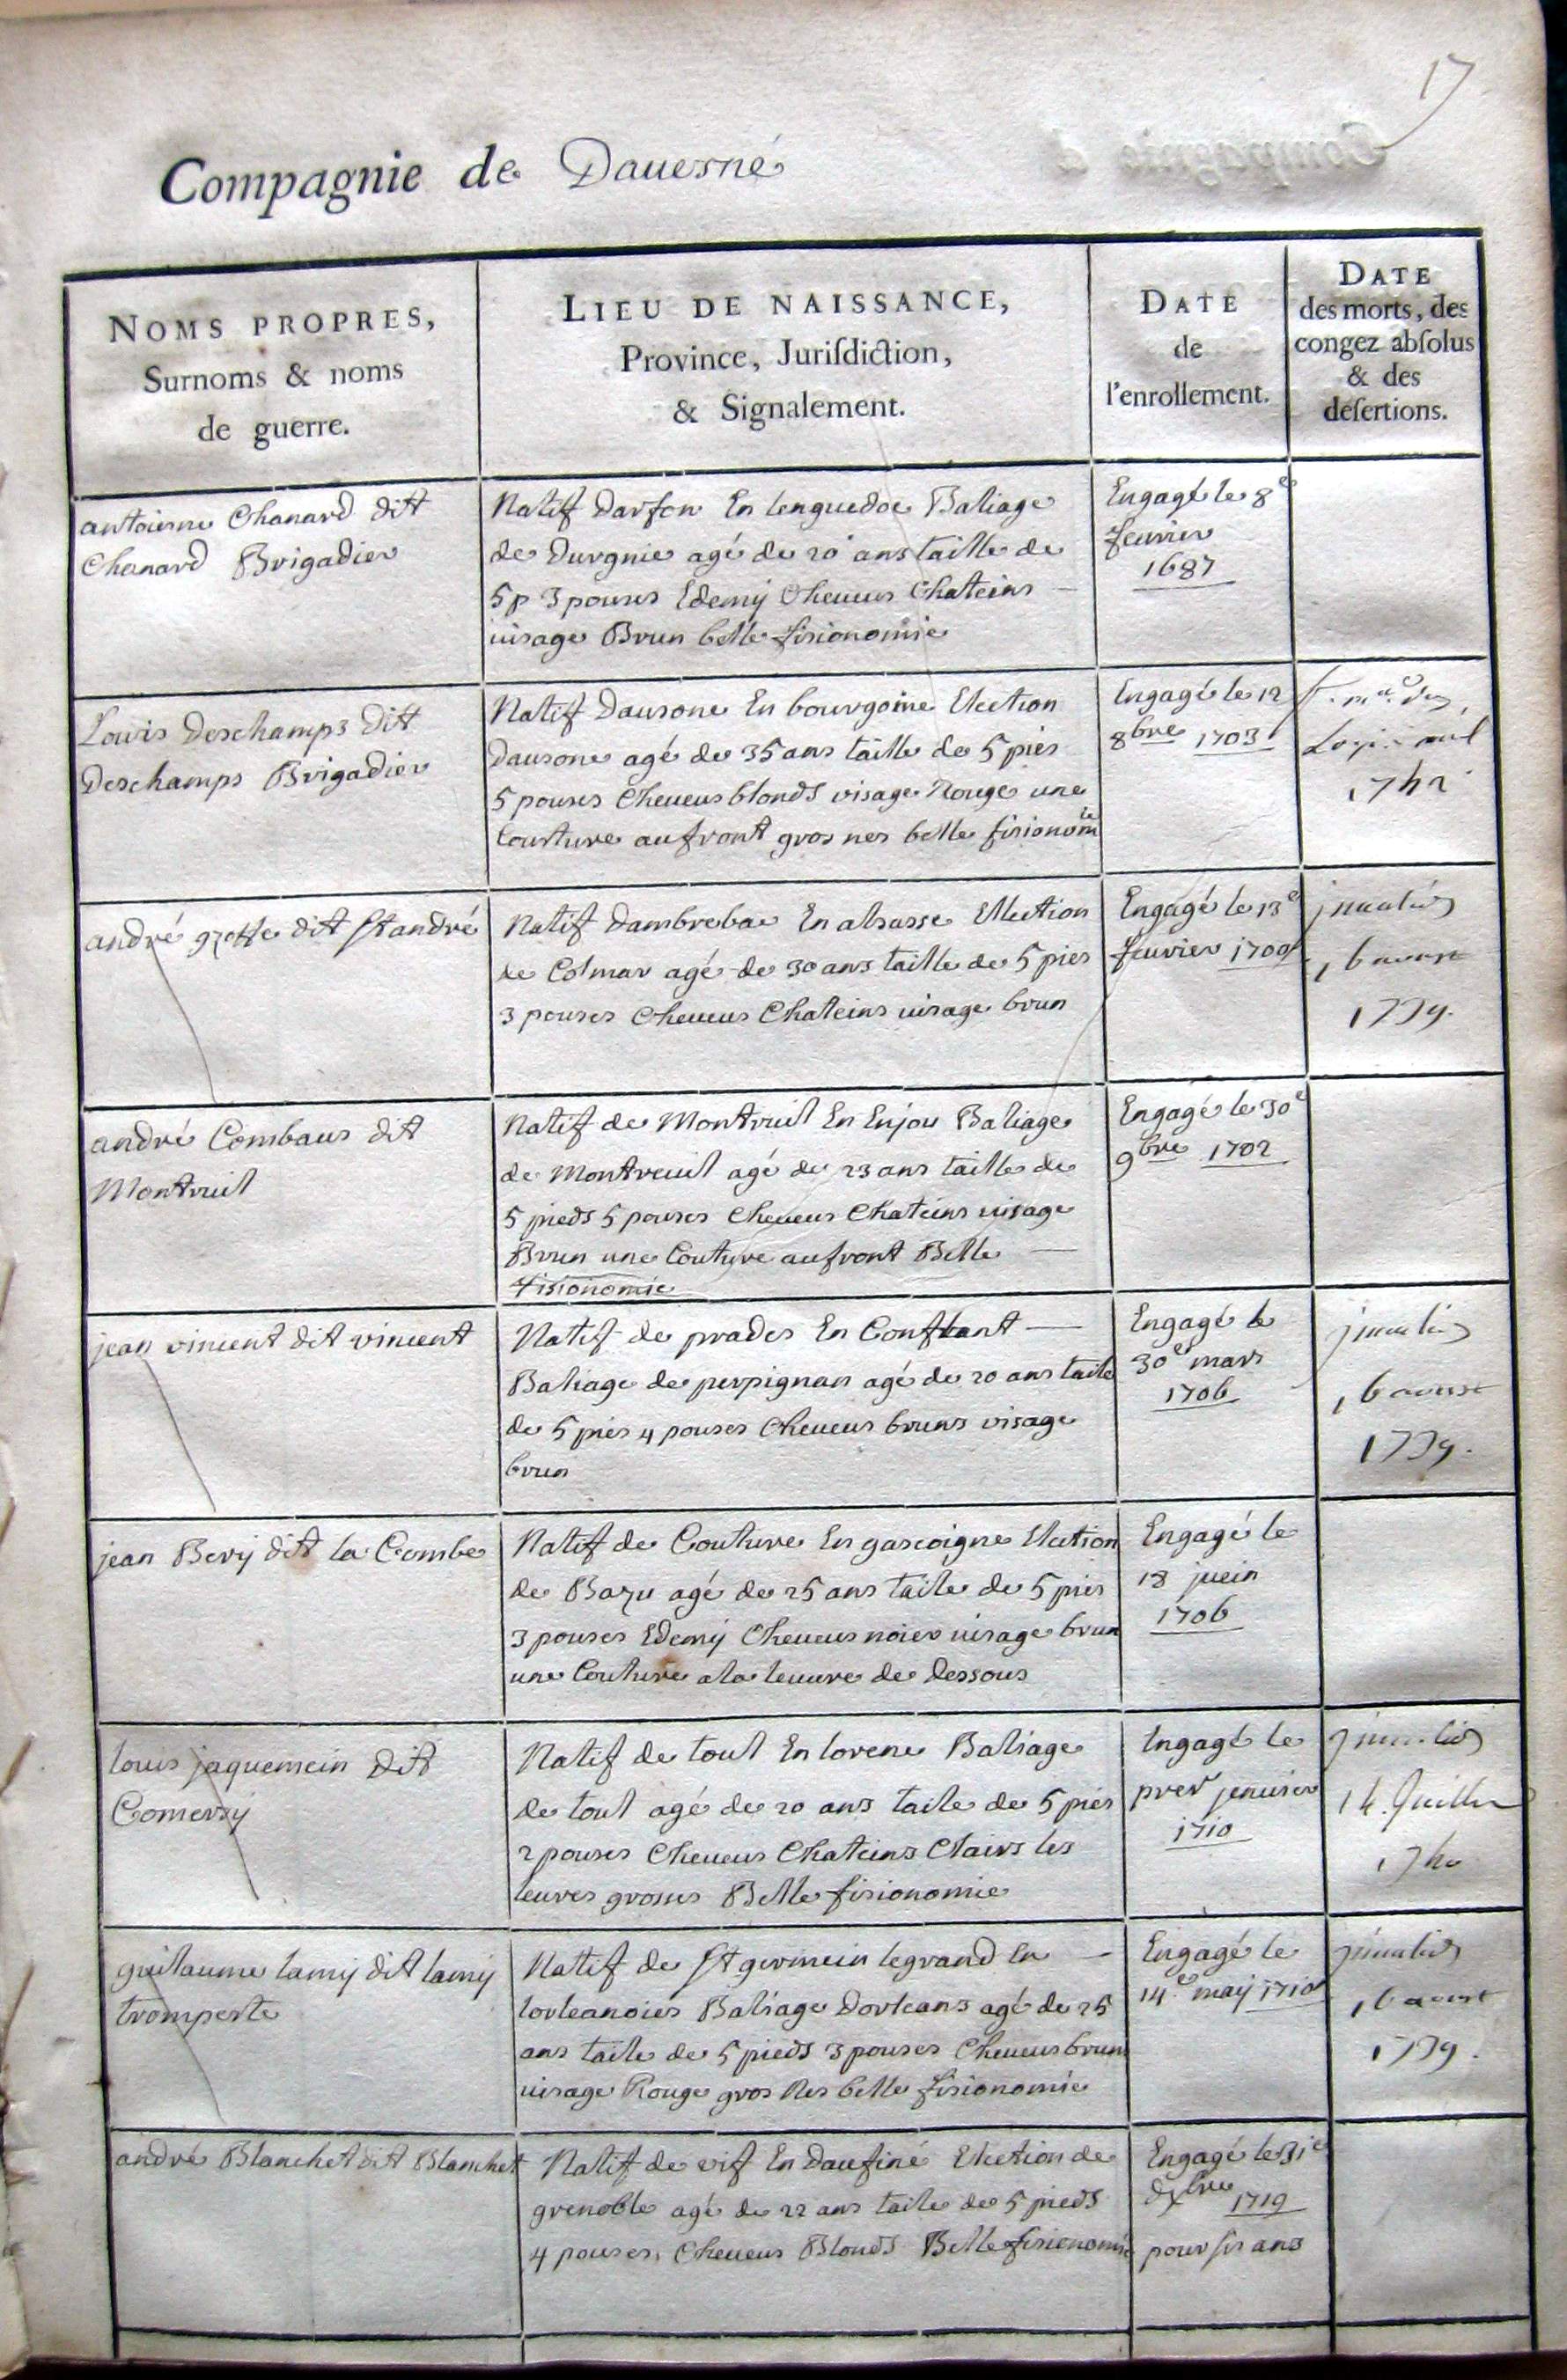 17
Compagnie de Dauesné
NOMS PROPRES,
Surnoms & noms
de guerre.
LIEU DE NAISSANCE,
Province, Jurisdiction,
& Signalement.
DATE
de
l'enrollement.
DATE
des morts, des
congez absolus
& des
desertions.
antoienne Chanard dit
Chanard Brigadier
Natif Darfon En lenguedoc Baliage
de Durgnie agé de 20 ans taille de
5 p 3 pouses Edemÿ Cheueus Chateins
uisage Brun belle fisionomie
Engagé le 8e
feurier
1687
Louis Deschamps dit
Deschamps Brigadier
Natif Dausone En bourgoine Election
Dausone agé de 35 ans taille de 5 pies
5 pouses Cheueus blonds visage Rouge une
Couture au front gros nes belle fisionomie
Engagé le 12
8bre 1703
1742
andré dit St andré
Natif Dambrebac En alsasse Ellection
de Colmar agé de 30 ans taille de 5 pies
3 pouses Cheueus Chateins uisage brun
Engagé le 13e
feurier 1709
jnualides
16 aoust
1739.
andré Combaus dit
Montruil
Natif de Montruil En Enjou Baliage
de Montreuil agé de 23 ans taille de
5 pieds 5 pouses Cheueus Chateins uisage
Brun une Couture au front Belle
fisionomie
Engagé le 30e
9bre 1702
jean vincent dit vincent
Natif de prades En Conflant
Baliage de perpignan agé de 20 ans taile
de 5 pies 4 pouses Cheueus bruns visage
brun
Engagé le
30e mars
1706
jnualides
16 aoust
1739.
jean Berÿ dit la Combe
Natif de Couture En gascoigne Election
de Bazu agé de 25 ans taile de 5 pies
3 pouses Edemÿ Cheueus noier uisage brun
une Couture a la leuure de dessous
Engagé le
18 juein
1706
louis jaquemein dit
Comersÿ
Natif de toul En lorene Baliage
de toul agé de 20 ans taile de 5 pies
2 pouses Cheueus Chateins Clairs les
leures groses Belle fisionomie
Engagé le
prer jenuier
1710
jnualides
14 Juillet
1740
guilaume lamÿ dit lamÿ
trompette
Natif de St germein legrand En
lorleanoies Baliage Dorleans agé de 25
ans taile de 5 pieds 3 pouses Cheueus bruns
uisage Rouge gros Nes belle fisionomie
Engagé le
14e maÿ 1710
jnualides
16 aoust
1739.
andré Blanchet dit Blanchet
Natif de vif En Daufiné Election de
grenoble agé de 22 ans taile de 5 pieds
4 pouses Cheueus Blonds Belle fisionomie
Engagé le 31e
dxbre 1719
pour sis ans